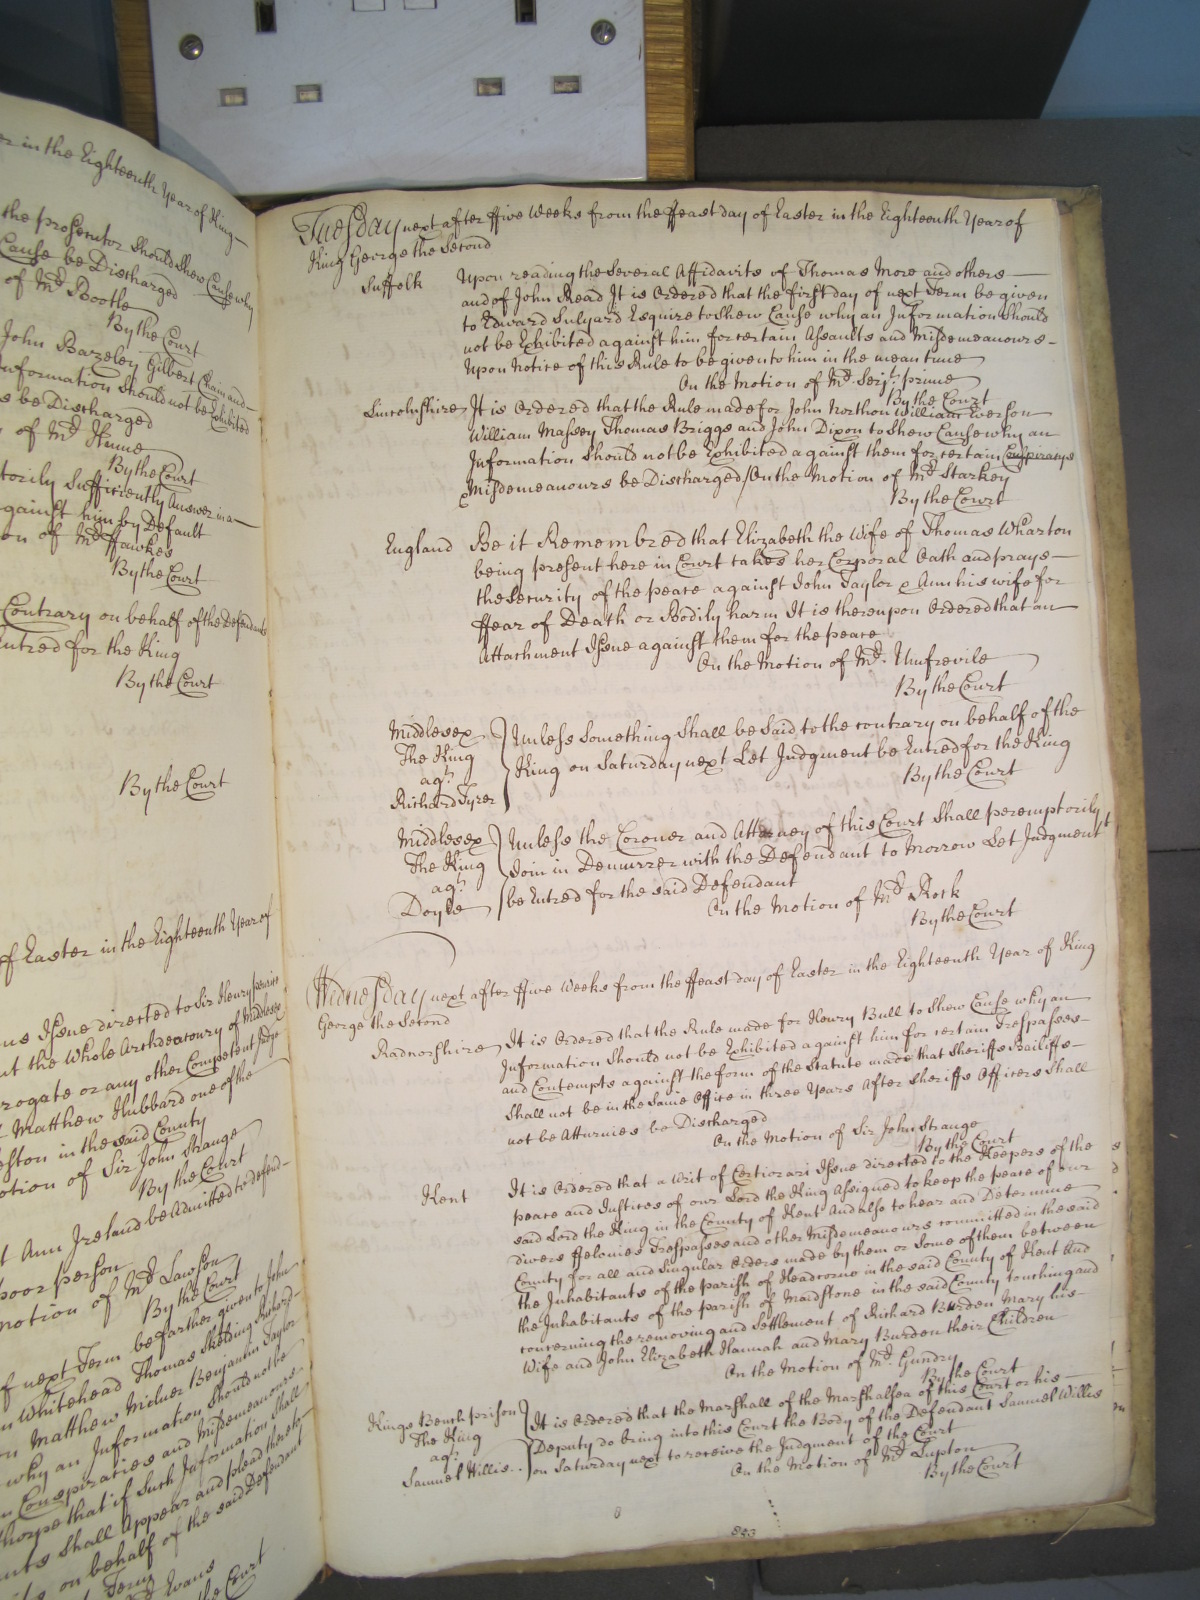 er in the Eighteenth Year of King
the prosecutor should shew Cause why
Cause be Discharged
of Mr. Bootle
By the Court
John Bazeley Gilbert
Information should not be Exhibited
s be Discharged
of Mr. Hume
By the Court
torily Sufficiently Answer in a
against him by Default
on of Mr. Hawkes
By the Court
Contrary on behalf of the Defendants
Entred for the King
By the Court
By the Court
of Easter in the Eighteenth Year of
us Issue directed to Sir Henry
ut the Whole Archdeaconry of Middlesex
rrogate or any other Competent Judge
Matthew Hubbard one of the
eston in the said County
otion of Sir John Strange
By the Court
t Ann Ireland be Admitted to defend
poor person
motion of Mr. Lawson
By the Court
of next Term be farther given to John
n Whitehead Thomas Richard
on Matthew Milner Benjamin Taylor
why an Information should not be
n Conspiracies and Misdemeanours
thorpe that if Such Information Shall
nts Shall Appear and plead thereto
on behalf of the said Defendant
Term
Evans
the Court
Tuesday next after ffive Weeks from the ffeast day of Easter in the Eighteenth Year of
King George the Second
Suffolk Upon reading the Several Affidavits of Thomas More and others
and of John Read It is Ordered that the first day of next Term be given
to Edward Sulyard Esquire to shew Cause why an Information should
not be Exhibited against him for certain Assaults and Misdemeanours
Upon Notice of this Rule to be given to him in the mean time
On the Motion of Mr. Serjt. prime
By the Court
Lincolnshire It is Ordered that the Rule made for John Northon William Everson
William Massey Thomas Briggs and John Dixon to shew Cause why an
Information should not be Exhibited against them for certain Conspiracys
& Misdemeanours be Discharged / On the Motion of Mr. Starkey
By the Court
England Be it Remembred that Elizabeth the Wife of Thomas Wharton
being present here in Court takes her Corporal Oath and prays
the Security of the peace against John Taylor & Ann his wife for
ffear of Death or Bodily harm It is thereupon Ordered that an
Attachment Issue against them for the peace
On the Motion of Mr. Umfrevile
By the Court
Middlesex
The King
agt.
Richard Tyrer
Unless Something Shall be Said to the contrary on behalf of the
King on Saturday next Let Judgment be Entred for the King
By the Court
Middlesex
The King
agt.
Doyle
Unless the Coroner and Attorney of this Court Shall peremptorily
Join in Demurrer with the Defendant to Morrow Let Judgment
be Entred for the said Defendant
On the Motion of Mr. Rock
By the Court
Wednesday next after ffive Weeks from the ffeast day of Easter in the Eighteenth Year of King
George the Second
Radnorshire It is Ordered that the Rule made for Henry Bull to Shew Cause why an
Information should not be Exhibited against him for certain Trespasses
and Contempts against the form of the Statute made that Sheriffs Bailiffs
Shall not be in the Same Office in three Years After Sheriffs Officers Shall
not be Atturnies be Discharged
On the Motion of Sir John Strange
By the Court
Kent It is Ordered that a Writ of Certiorari Issue directed to the Keepers of the
peace and Justices of our Lord the King Assigned to keep the peace of our
said Lord the King in the County of Kent And also to hear and Determine
divers ffelonies Trespasses and other Misdemeanours committed in the said
County for all and Singular Orders made by them or Some of them between
the Inhabitants of the parish of Headcorne in the said County of Kent And
the Inhabitants of the parish of Maidstone in the said County touching and
concerning the removing and Settlement of Richard Burden Mary his
Wife and John Elizabeth Hannah and Mary Burden their Children
On the Motion of Mr. Gundry
By the Court
Kings Bench prison
The King
agt.
Samuel Willis
It is Ordered that the Marshall of the Marshalsea of this Court or his
Deputy do bring into this Court the Body of the Defendant Samuel Willis
on Saturday next to receive the Judgment of the Court
On the Motion of Mr. Lupton
By the Court
8
843